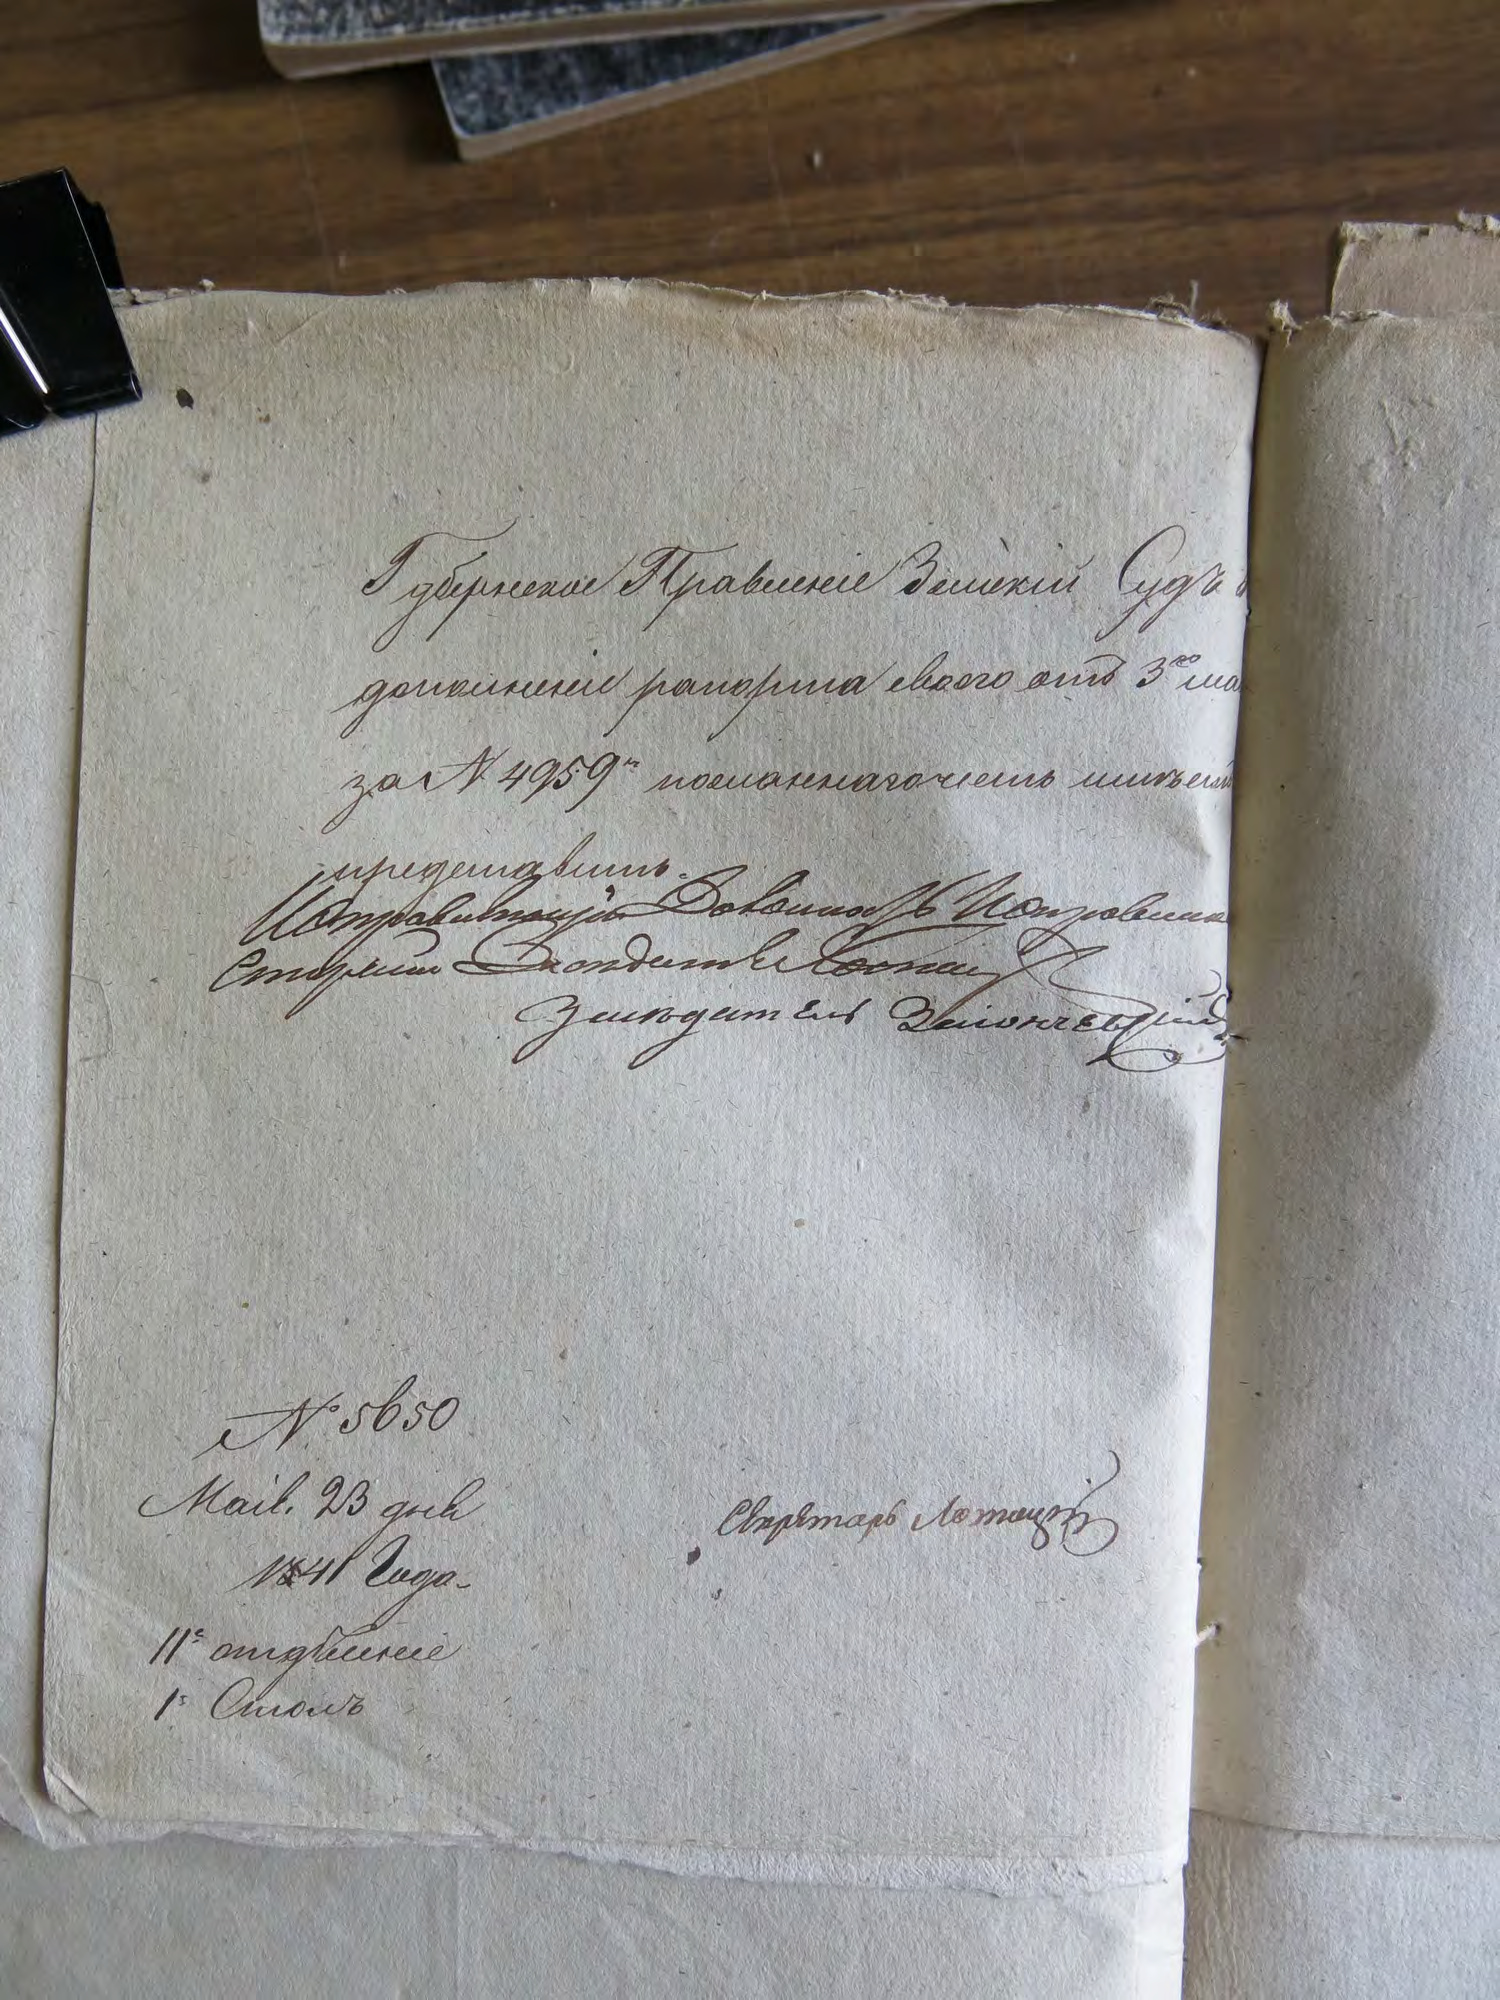 Губернское Правленіе Земскій Судъ в
дополненіе рапорта своего отъ 3го ма
за № 4959м посланнаго честь имѣетъ
представить.
Исправникъ
Старшій Засѣдатель
Засѣдатель
№ 5650
Маія 23 дня
1841 Года.
II е отдѣленіе
1 й Столъ
Секретарь Лотоцкій